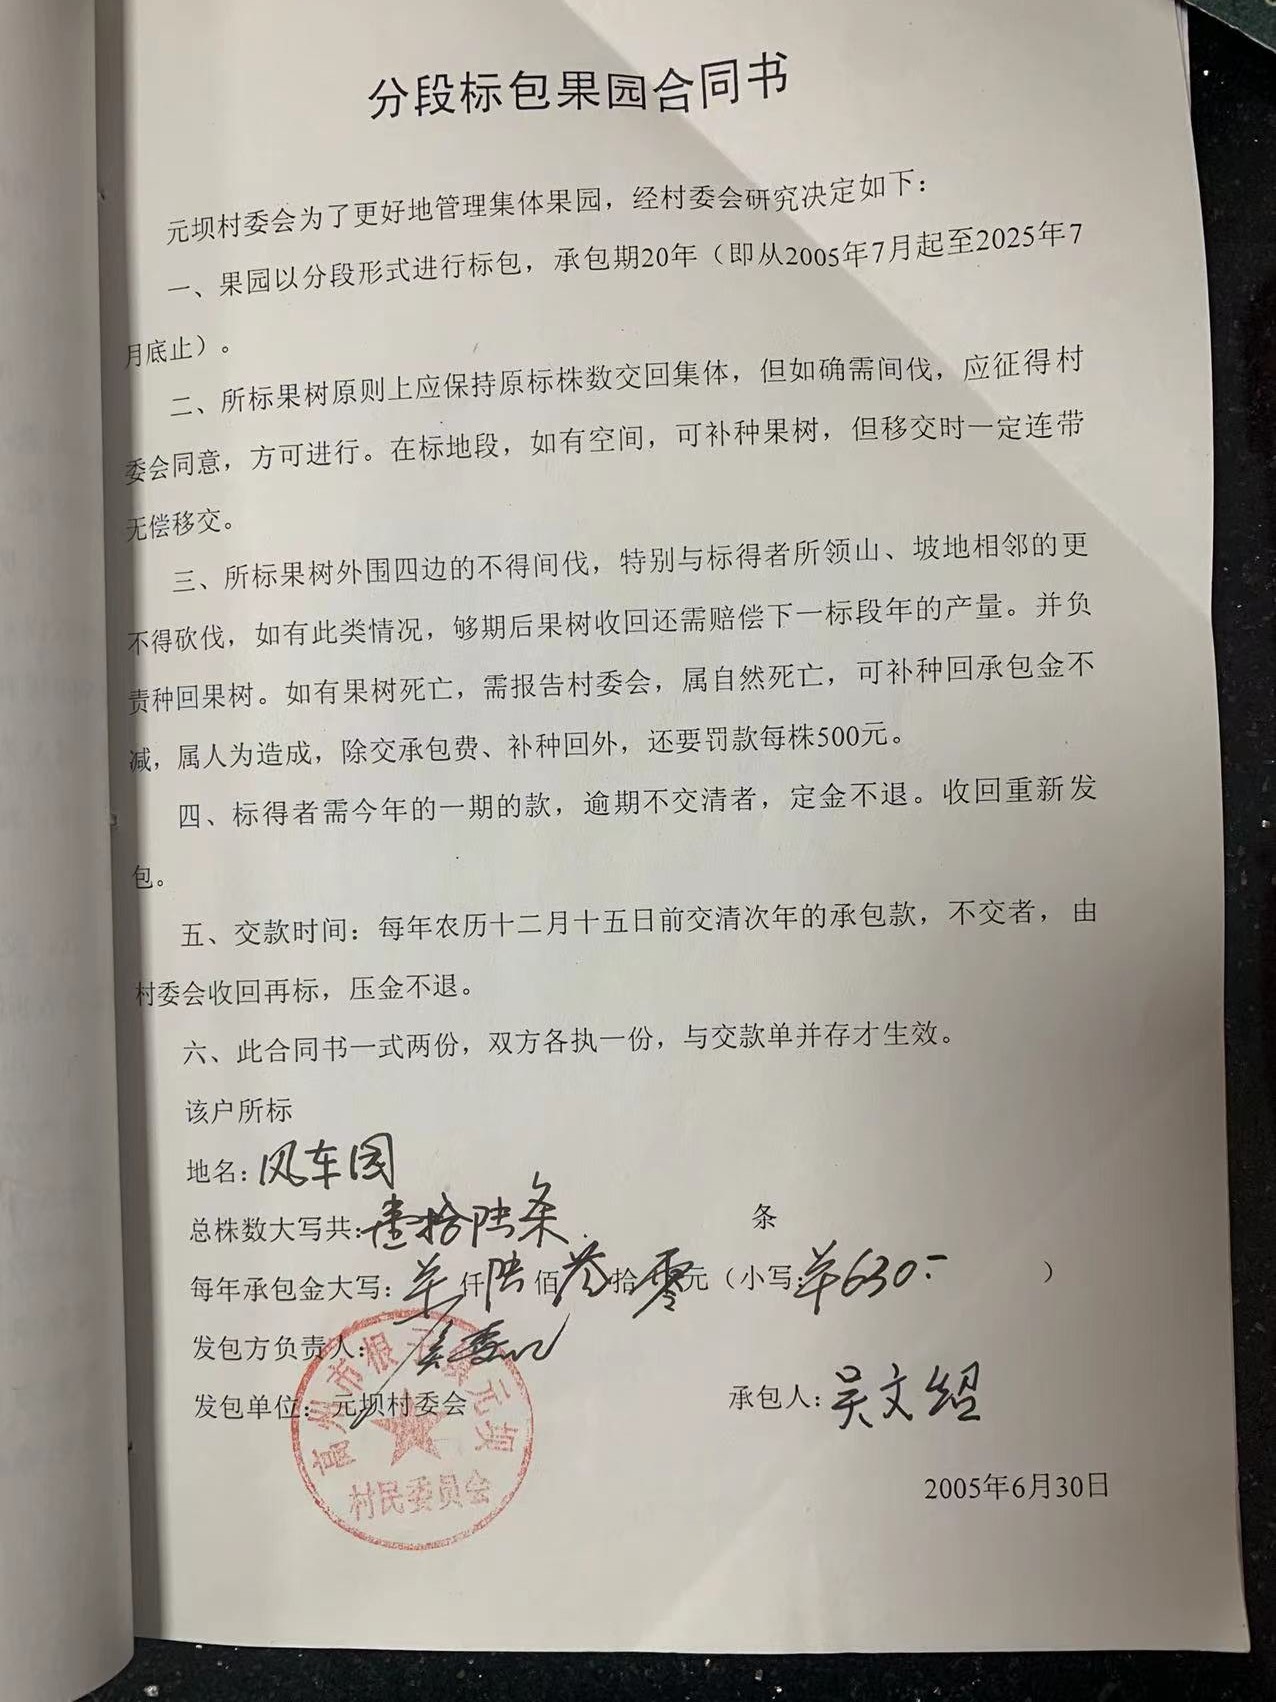 分段标包果园合同书
元坝村委会为了更好地管理集体果园，经村委会研究决定如下：
一、果园以分段形式进行标包，承包期20年（即从2005年7月起至2025年7
月底止）。
二、所标果树原则上应保持原标株数交回集体，但如确需间伐，应征得村
委会同意，方可进行。在标地段，如有空间，可补种果树，但移交时一定连带
无偿移交。
三、所标果树外围四边的不得间伐，特别与标得者所领山、坡地相邻的更
不得砍伐，如有此类情况，够期后果树收回还需赔偿下一标段年的产量。并负
责种回果树。如有果树死亡，需报告村委会，属自然死亡，可补种回承包金不
减，属人为造成，除交承包费、补种回外，还要罚款每株500元。
四、标得者需今年的一期的款，逾期不交清者，定金不退。收回重新发
包。
五、交款时间：每年农历十二月十五日前交清次年的承包款，不交者，由
村委会收回再标，压金不退。
六、此合同书一式两份，双方各执一份，与交款单并存才生效。
该户所标
地名：风车园
总株数大写共：壹拾陆条 条
每年承包金大写：羊仟陆佰叁拾零元（小写：羊630.-）
发包方负责人：
发包单位：元坝村委会 承包人：吴文绍
高州市根子镇元坝
村民委员会
2005年6月30日